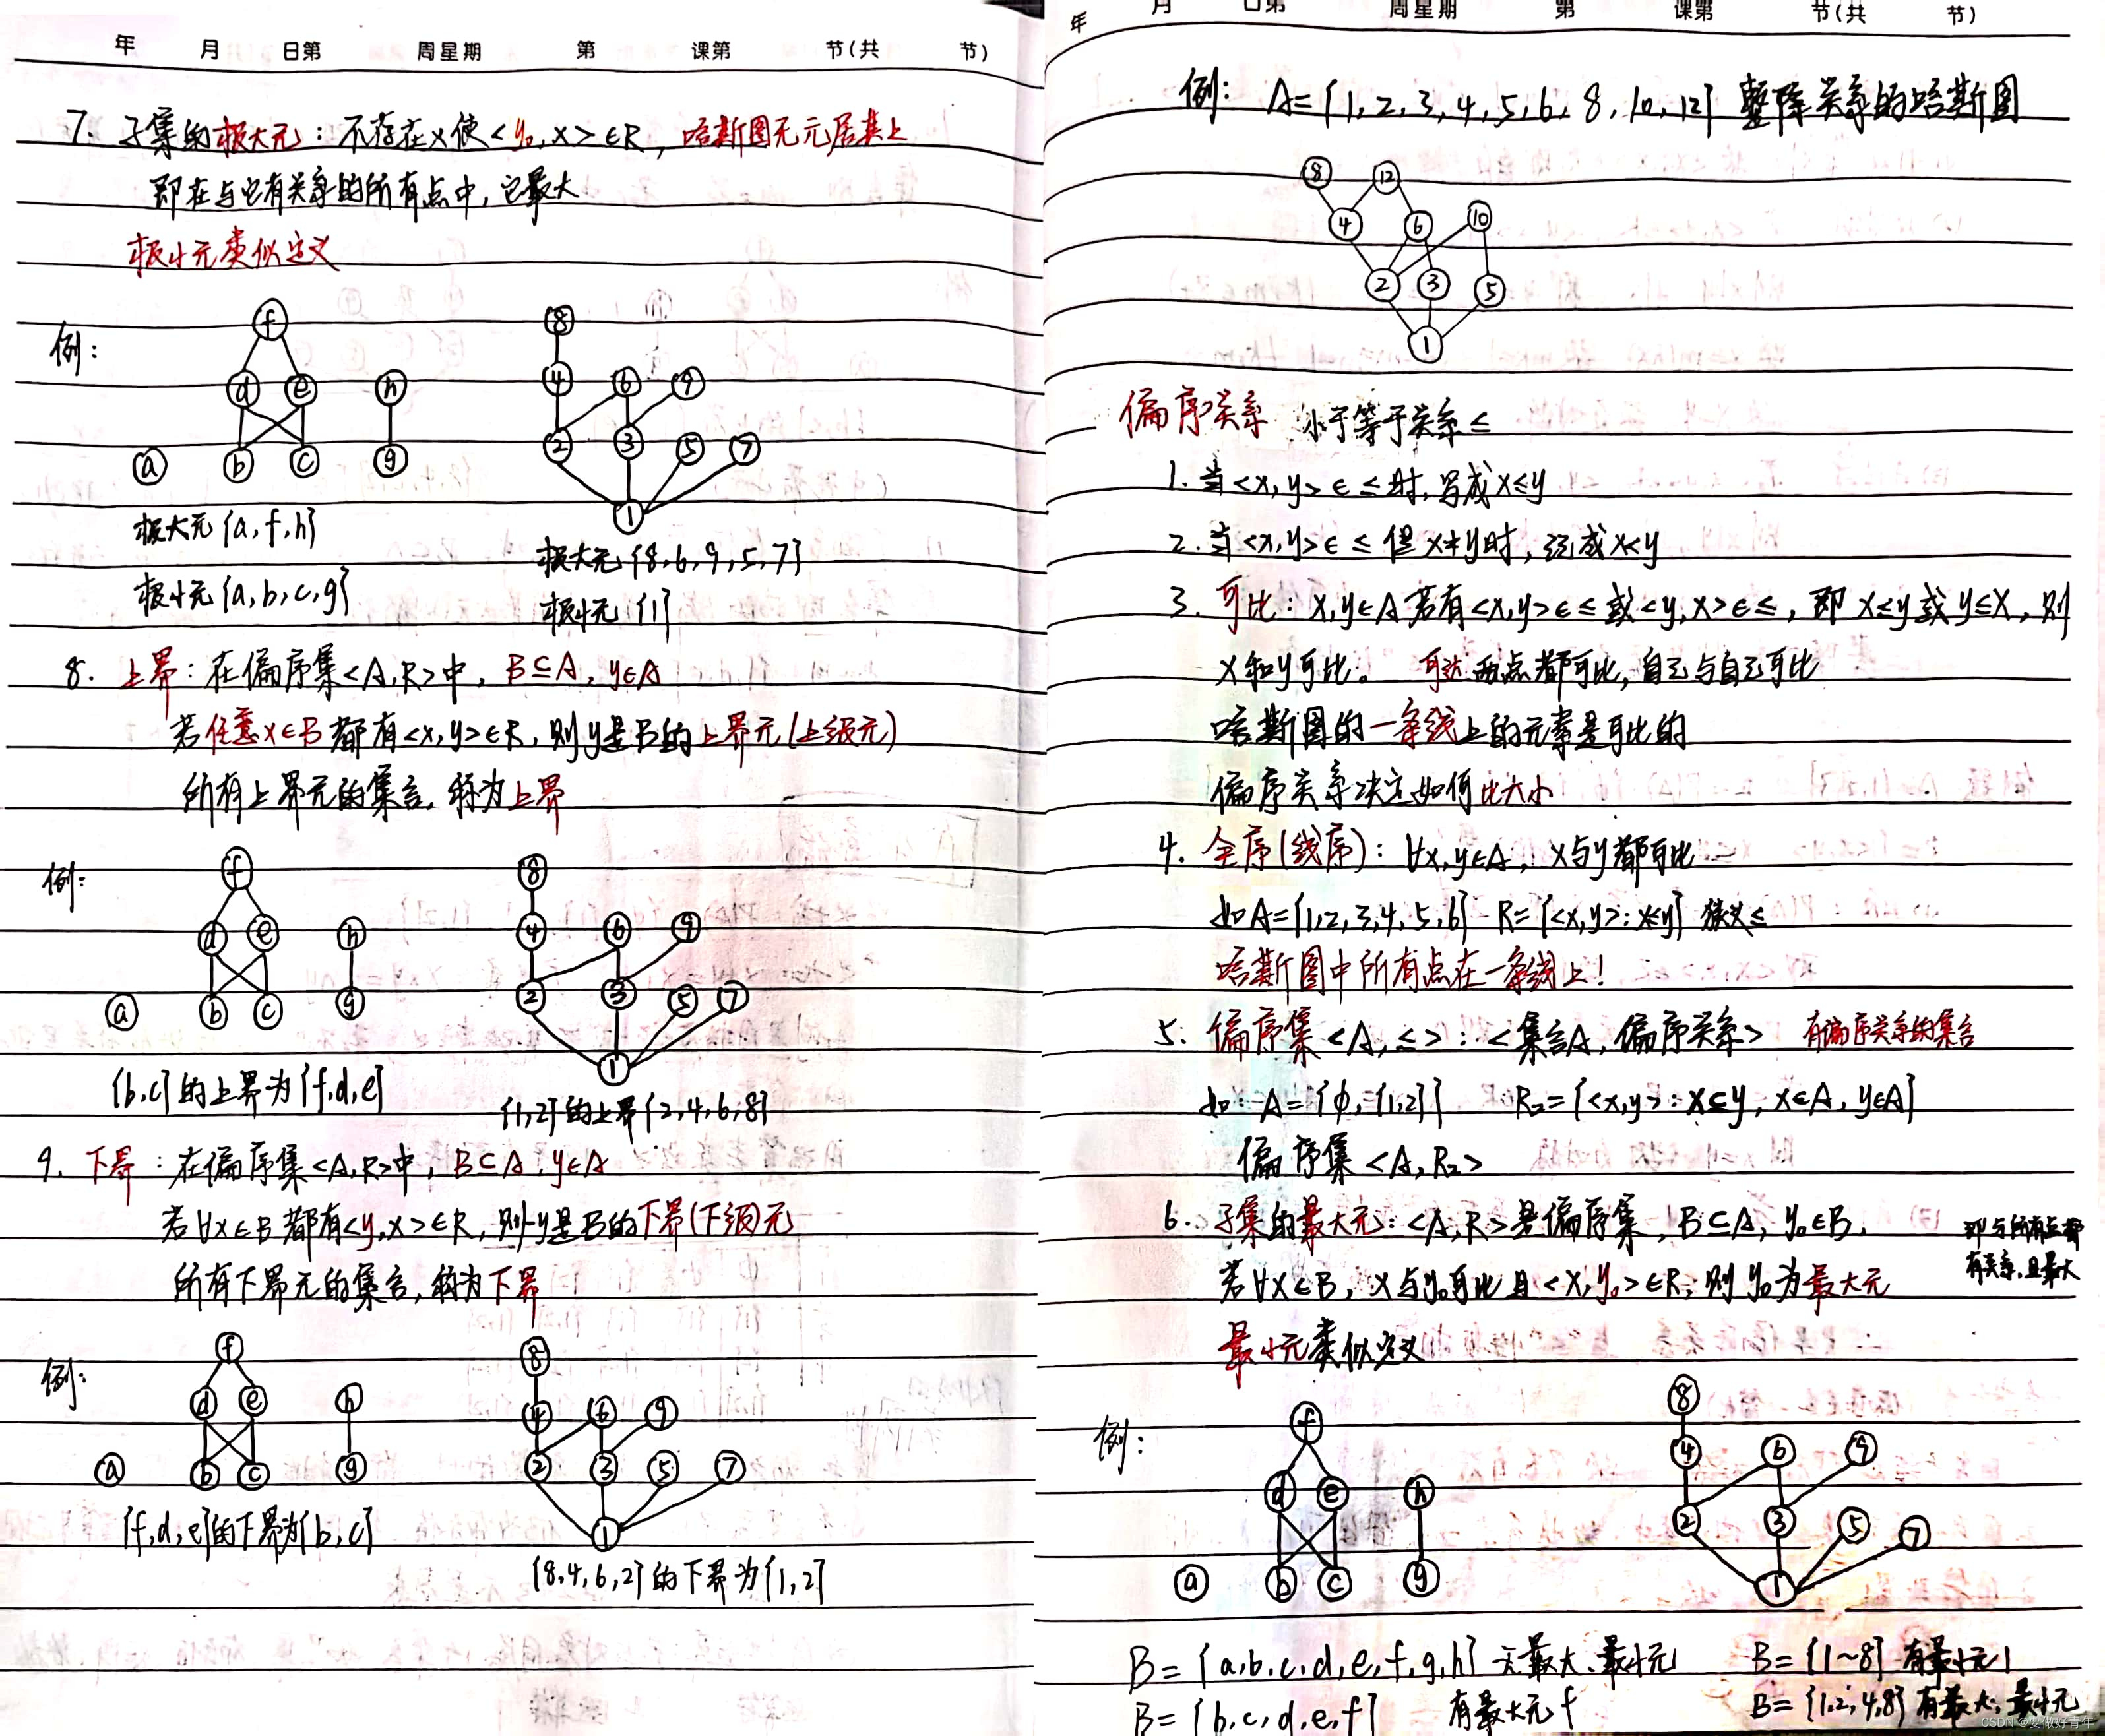 年 月 日第 周星期 第 课第 节(共 节)
7. 子集的极大元：不存在x使<y₀,x>∈R，哈斯图无元居其上
即在与它有关系的所有点中，它最大
极小元类似定义
例：
f
8
d e h
4 6 9
a b c g
2 3 5 7
1
极大元{a,f,h}
极大元{8,6,9,5,7}
极小元{a,b,c,g}
极小元{1}
8. 上界：在偏序集<A,R>中，B⊆A，y∈A
若任意x∈B都有<x,y>∈R，则y是B的上界元(上级元)
所有上界元的集合，称为上界
例：
f
8
d e h
4 6 9
a b c g
2 3 5 7
1
{b,c}的上界为{f,d,e}
{1,2}的上界{2,4,6,8}
9. 下界：在偏序集<A,R>中，B⊆A，y∈A
若∀x∈B都有<y,x>∈R，则y是B的下界(下级)元
所有下界元的集合，称为下界
例：
f
8
d e h
4 6 9
a b c g
2 3 5 7
1
{f,d,e}的下界为{b,c}
{8,4,6,2}的下界为{1,2}
年 月 日第 周星期 第 课第 节(共 节)
例：A={1,2,3,4,5,6,8,10,12} 整除关系的哈斯图
8 12
4 6 10
2 3 5
1
偏序关系 小于等于关系≤
1. 当<x,y>∈≤时，写成x≤y
2. 当<x,y>∈≤但x≠y时，记成x<y
3. 可比：x,y∈A若有<x,y>∈≤或<y,x>∈≤，即x≤y或y≤x，则
x和y可比。 可达两点都可比，自己与自己可比
哈斯图的一条线上的元素是可比的
偏序关系决定如何比大小
4. 全序(线序)：∀x,y∈A，x与y都可比
如A={1,2,3,4,5,6} R={<x,y>:x≤y} 狭义≤
哈斯图中所有点在一条线上！
5. 偏序集<A,≤>：<集合A,偏序关系> 有偏序关系的集合
如：A={∅,{1,2}} R₂={<x,y>:x⊆y,x∈A,y∈A}
偏序集<A,R₂>
6. 子集的最大元：<A,R>是偏序集，B⊆A，y₀∈B，
即与所有点都
若∀x∈B，x与y₀可比且<x,y₀>∈R，则y₀为最大元
有关系，且最大
最小元类似定义
例：
f
8
d e h
4 6 9
a b c g
2 3 5 7
1
B={a,b,c,d,e,f,g,h} 无最大、最小元
B={1~8} 有最小元1
B={b,c,d,e,f} 有最大元f
B={1,2,4,8} 有最大、最小元
CSDN @要做好青年